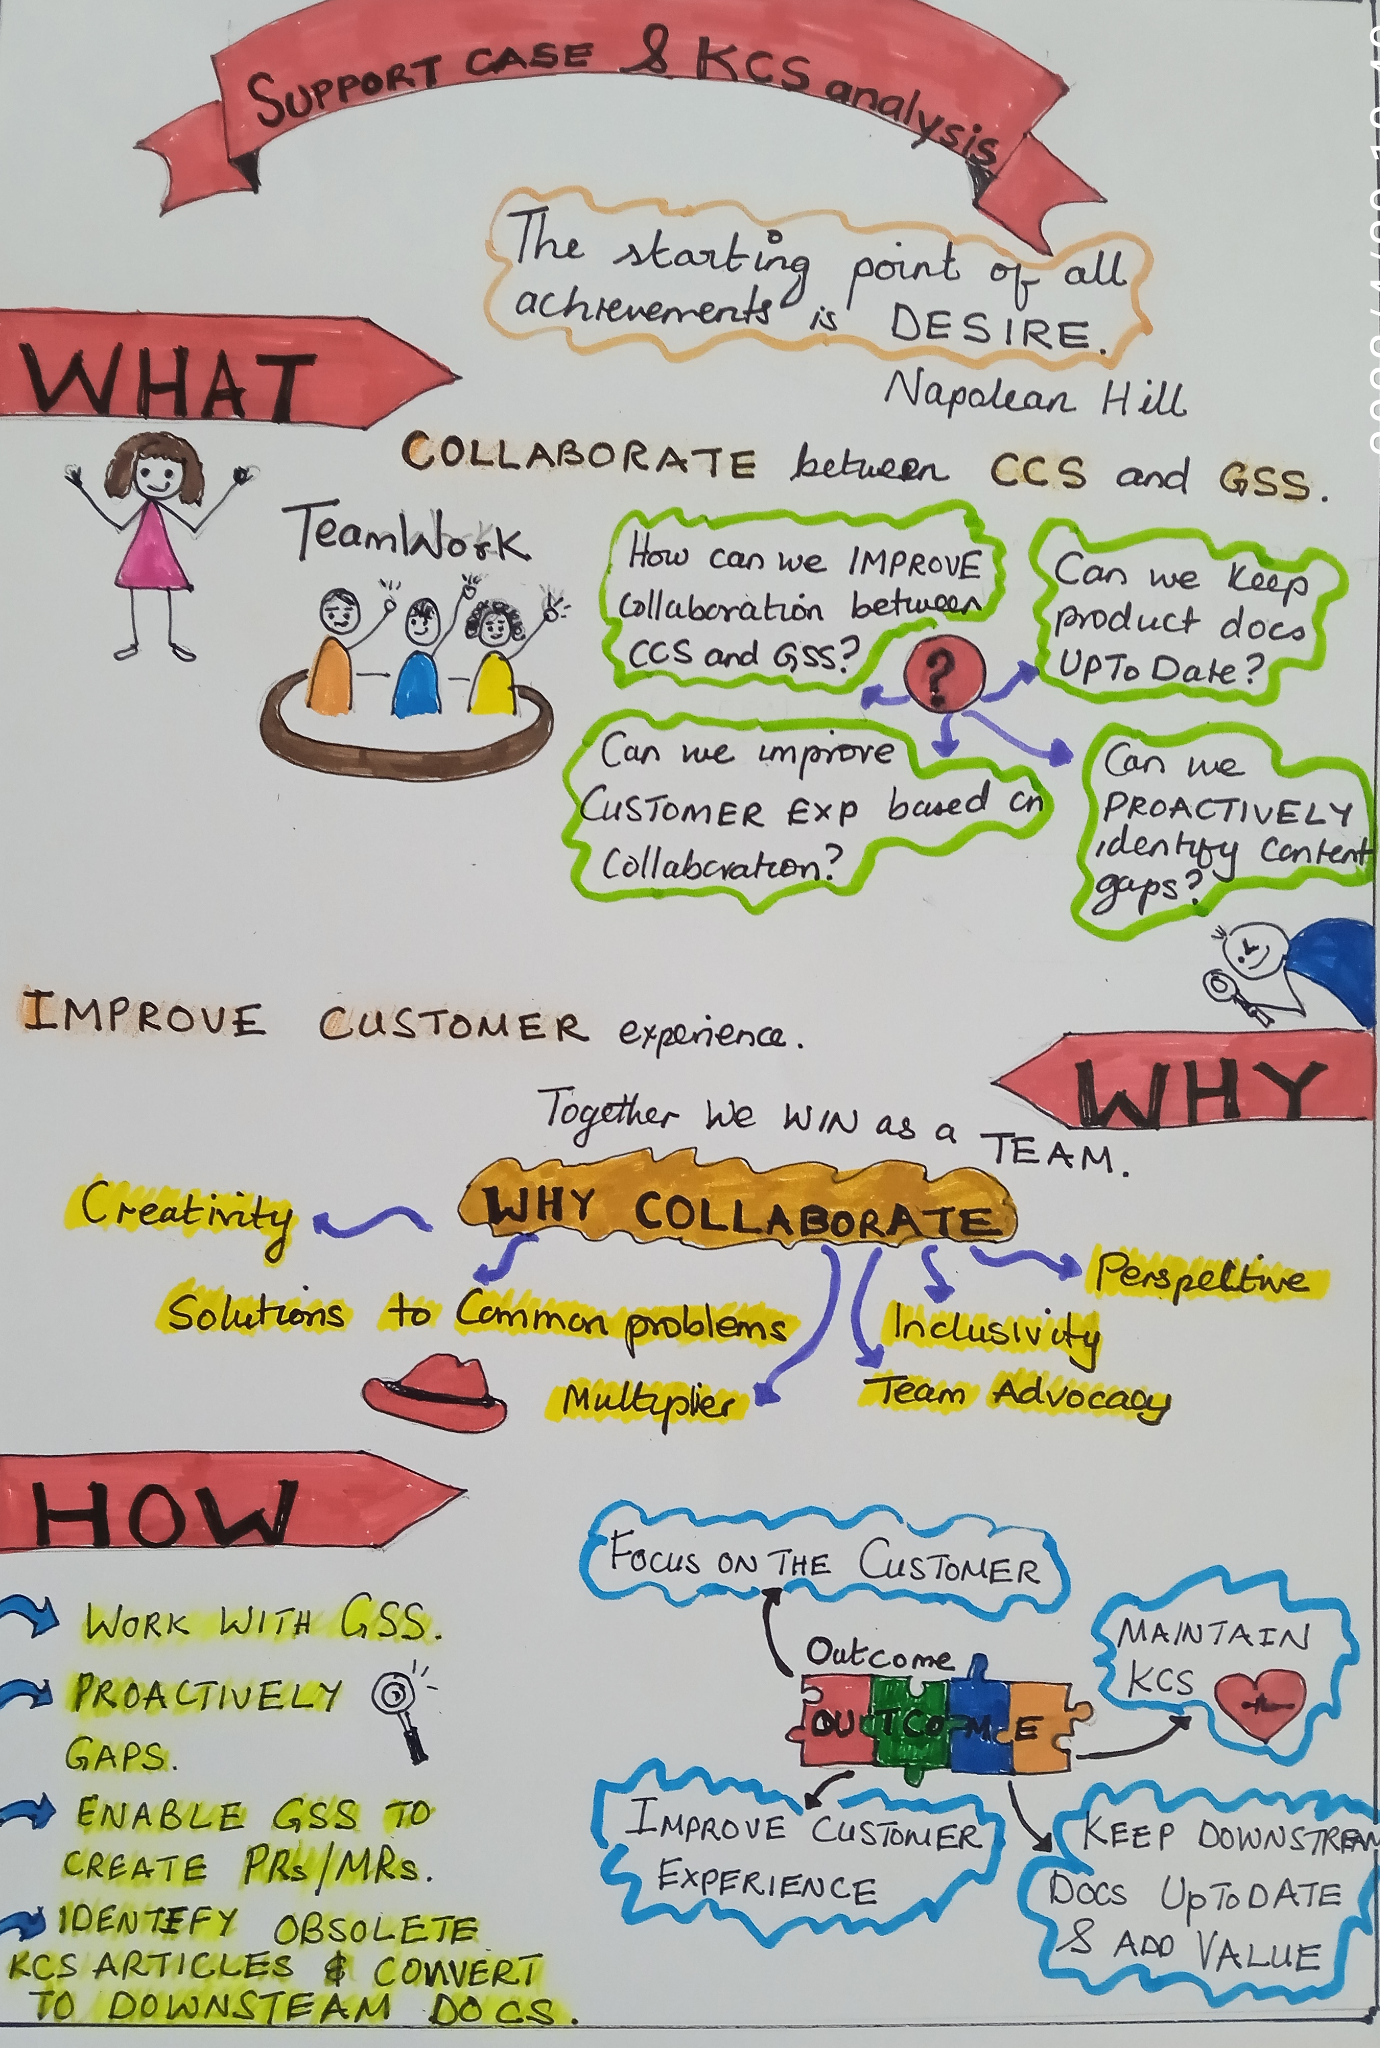 SUPPORT CASE & KCS analysis
The starting point of all
achievements is DESIRE.
Napolean Hill
WHAT
COLLABORATE between CCS and GSS.
TeamWork
How can we IMPROVE
collaboration between
CCS and GSS?
Can we keep
product docs
UPTo Date?
?
Can we improve
CUSTOMER EXP based on
Collaboration?
Can we
PROACTIVELY
identify content
gaps?
IMPROVE CUSTOMER experience.
WHY
Together We WIN as a TEAM.
WHY COLLABORATE
Creativity
Perspective
Solutions to Common problems
Inclusivity
Multiplier
Team Advocacy
HOW
WORK WITH GSS.
PROACTIVELY
GAPS.
ENABLE GSS TO
CREATE PRs/MRs.
IDENTIFY OBSOLETE
KCS ARTICLES & CONVERT
TO DOWNSTEAM DOCS.
FOCUS ON THE CUSTOMER
Outcome
OUTCOME
MAINTAIN
KCS
IMPROVE CUSTOMER
EXPERIENCE
KEEP DOWNSTREAM
DOCS UpToDATE
& ADD VALUE